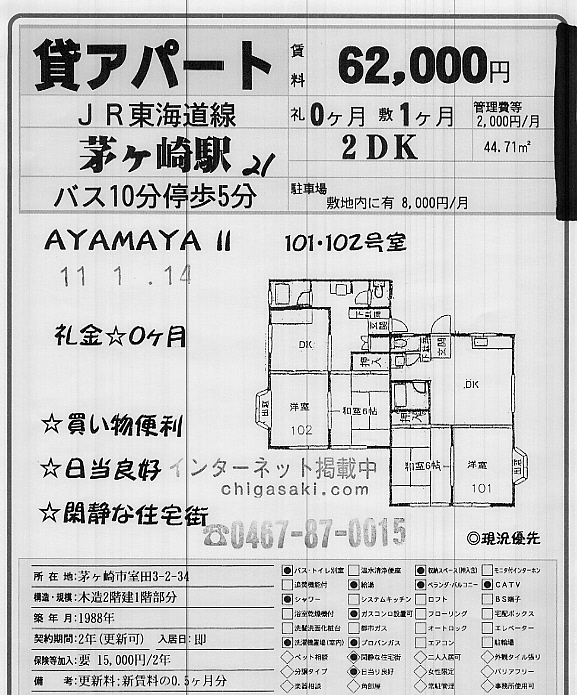 貸アパート
賃料 62,000円
JR東海道線
礼0ヶ月 敷1ヶ月
管理費等 2,000円/月
茅ヶ崎駅 21
2DK
44.71㎡
バス10分停歩5分
駐車場 敷地内に有 8,000円/月
AYAMAYA II 101・102号室
11 1 .14
礼金☆0ヶ月
☆買い物便利
☆日当良好
☆閑静な住宅街
インターネット掲載中
chigasaki.com
☎0467-87-0015
◎現況優先
下駄箱
玄関
DK
押入
洋室 102
和室6帖
出窓
下駄箱
玄関
DK
押入
和室6帖
洋室 101
出窓
所在地:茅ヶ崎市室田3-2-34
構造・規模:木造2階建1階部分
築年月:1988年
契約期間:2年(更新可) 入居日:即
保険等加入:要 15,000円/2年
備考:更新料:新賃料の0.5ヶ月分
バス・トイレ別室 温水清浄便座 収納スペース(押入含) モニタ付インターホン
追焚機能付 給湯 ベランダ・バルコニー CATV
シャワー システムキッチン ロフト BS端子
浴室乾燥機付 ガスコンロ設置可 フローリング 宅配ボックス
洗髪洗面化粧台 都市ガス オートロック エレベーター
洗濯機置場(室内) プロパンガス エアコン 駐輪場
ペット相談 閑静な住宅街 二人入居可 外観タイル張り
分譲タイプ 日当り良好 女性限定 バリアフリー
楽器相談 角部屋 常駐管理 事務所使用可